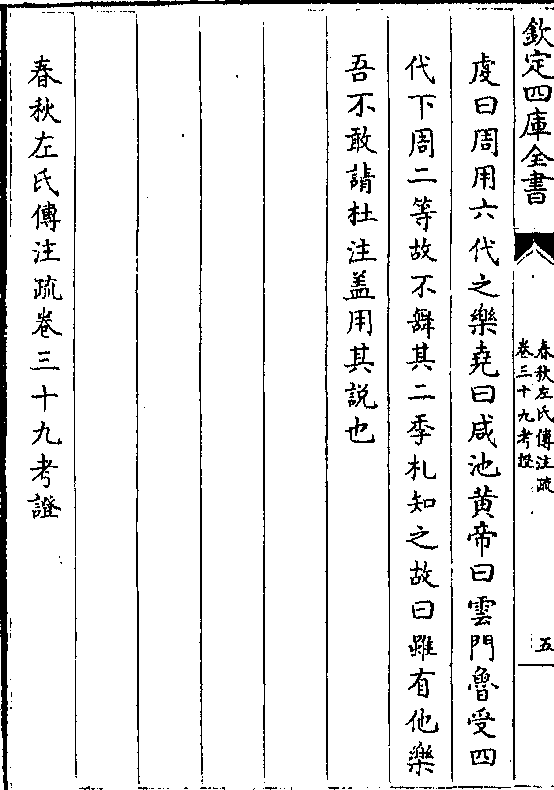 欽定四庫全書
春秋左氏傳注疏
卷三十九考證
五
虔曰周用六代之樂堯曰咸池黄帝曰雲門魯受四
代下周二等故不舞其二季札知之故曰雖有他樂
吾不敢請杜注蓋用其説也
春秋左氏傳注疏卷三十九考證